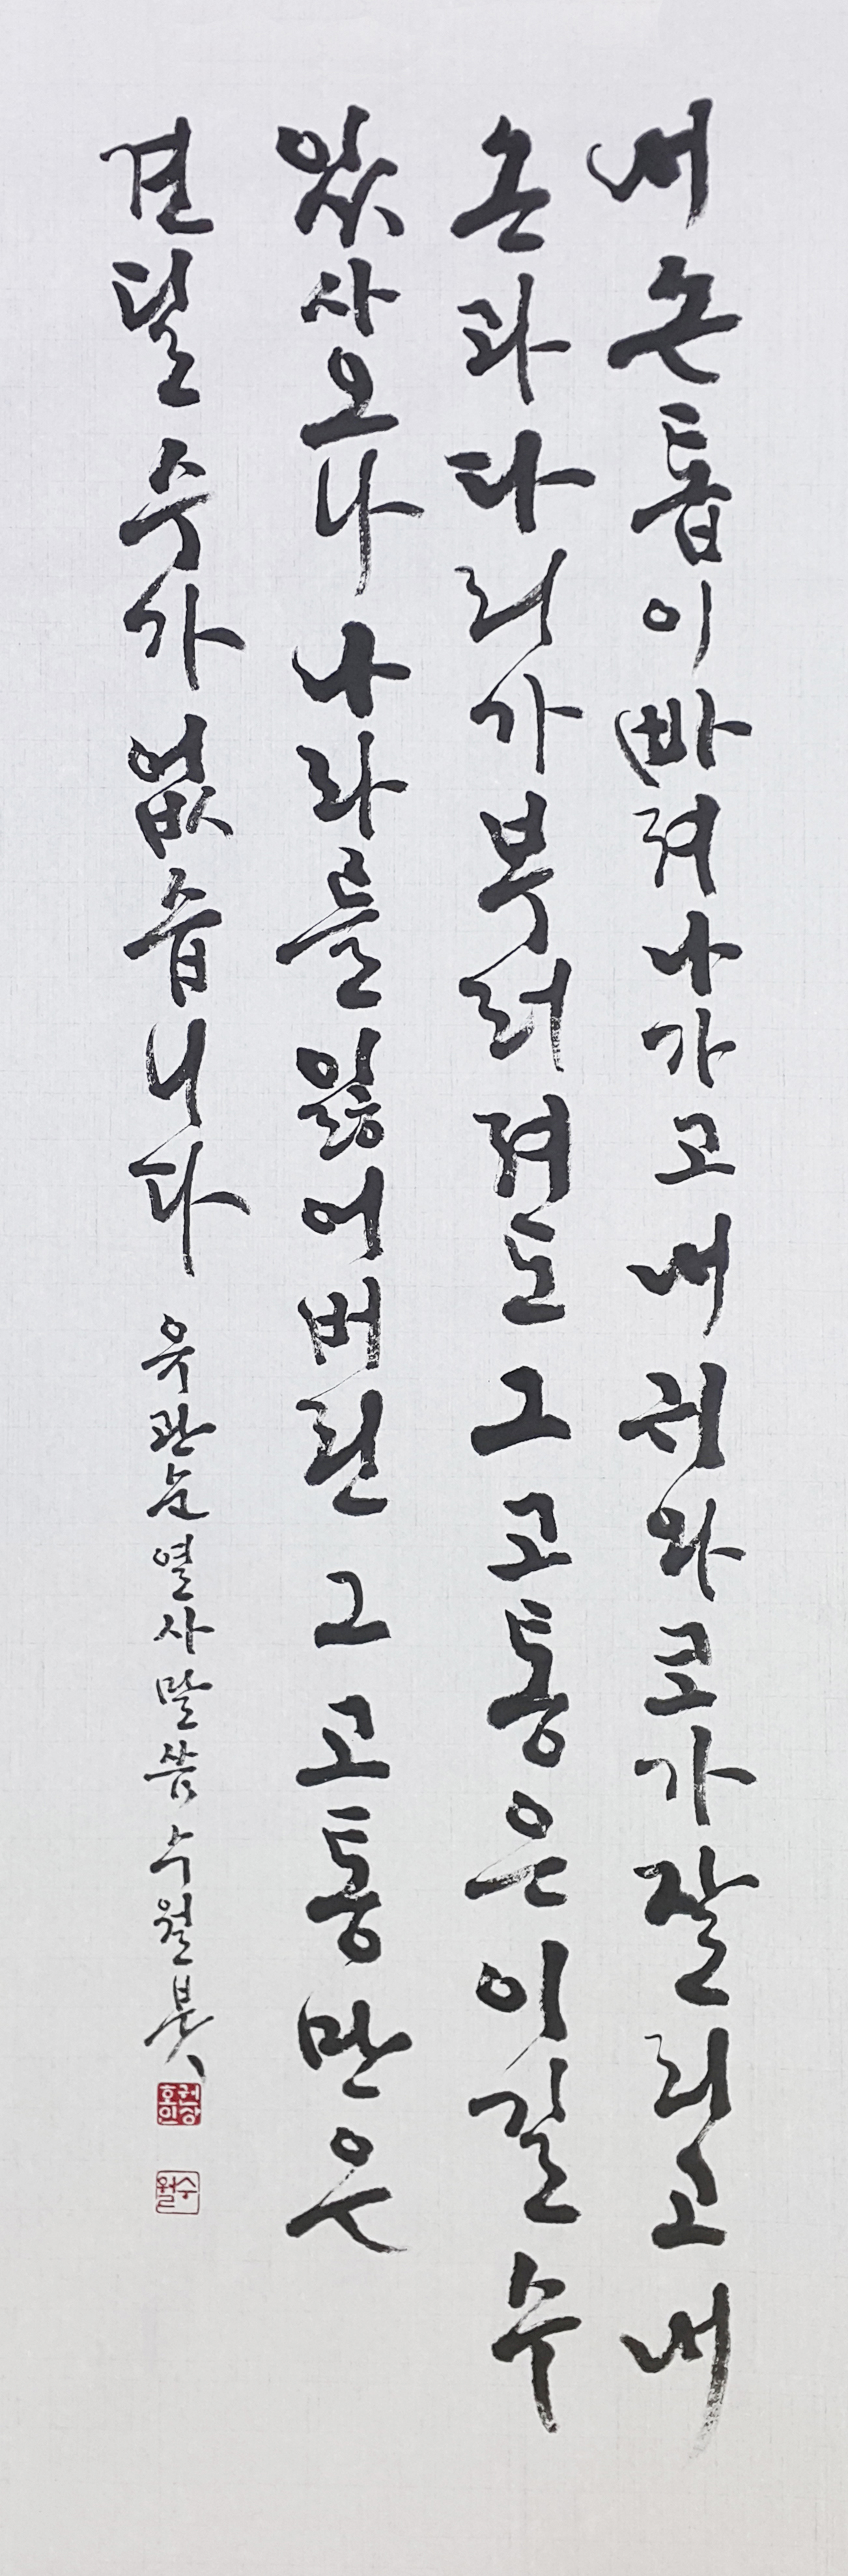 내손톱이빠져나가고내귀와코가잘리고내
손과다리가부러져도그고통은이길수
있사오나나라를잃어버린그고통만은
견딜수가없습니다
유관순열사말씀수월
수월